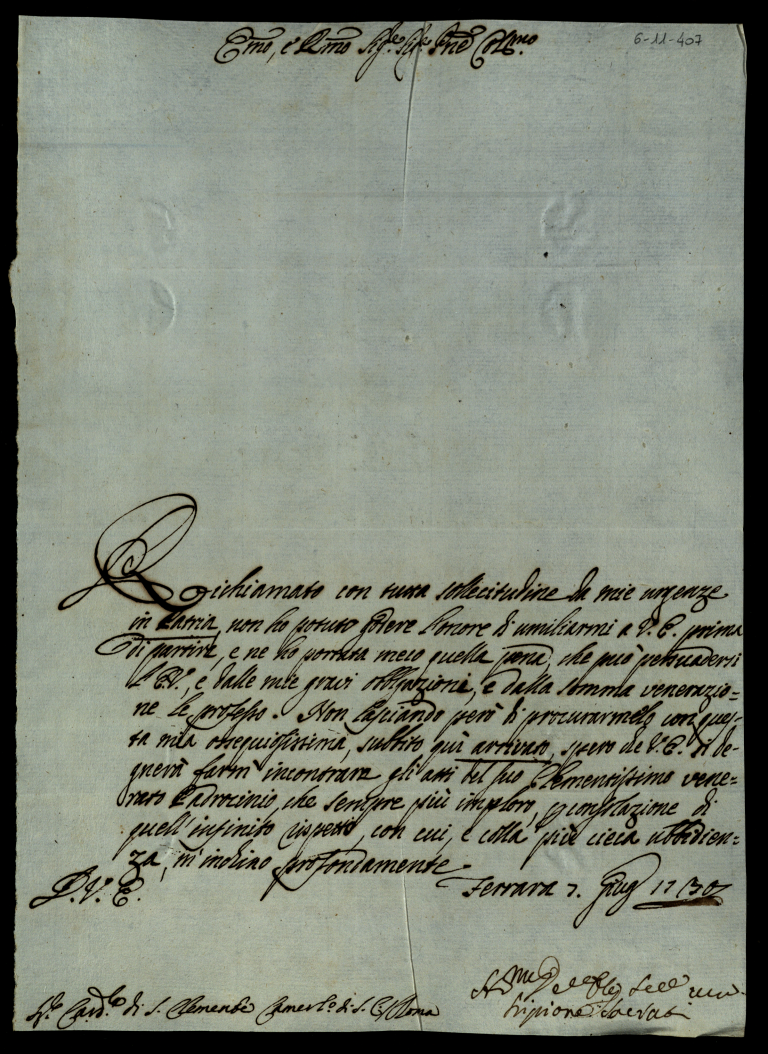 6-11-407
Emo, e Rmo Sig.re Sig.re Pne Colmo.
Richiamato con tutta sollecitudine da mie urgenze
in Patria, non ho potuto godere l'onore di umiliarmi a V. E. prima
di partire, e ne ho portata meco quella pena, che può persuadersi
l'E.V., e dalle mie gravi obbligazioni, e dalla somma venerazio=
ne le professo. Non lasciando però di procurarmelo con ques=
ta mia ossequiosissima, subbito quì arrivato, spero che V. E. si de=
gnerà farmi incontrare gli atti del suo Clementissimo vene=
rato Padrocinio, che sempre più imploro, consolazione di
quell'infinito rispetto, con cui, e colla più cieca ubbidien=
za, m'inchino profondamente.
D. V. E.
Ferrara 7. Giug 1730
Sr. Card.le di S. Clemente Camerl.o di S. C. Roma
Scipione Sacrati